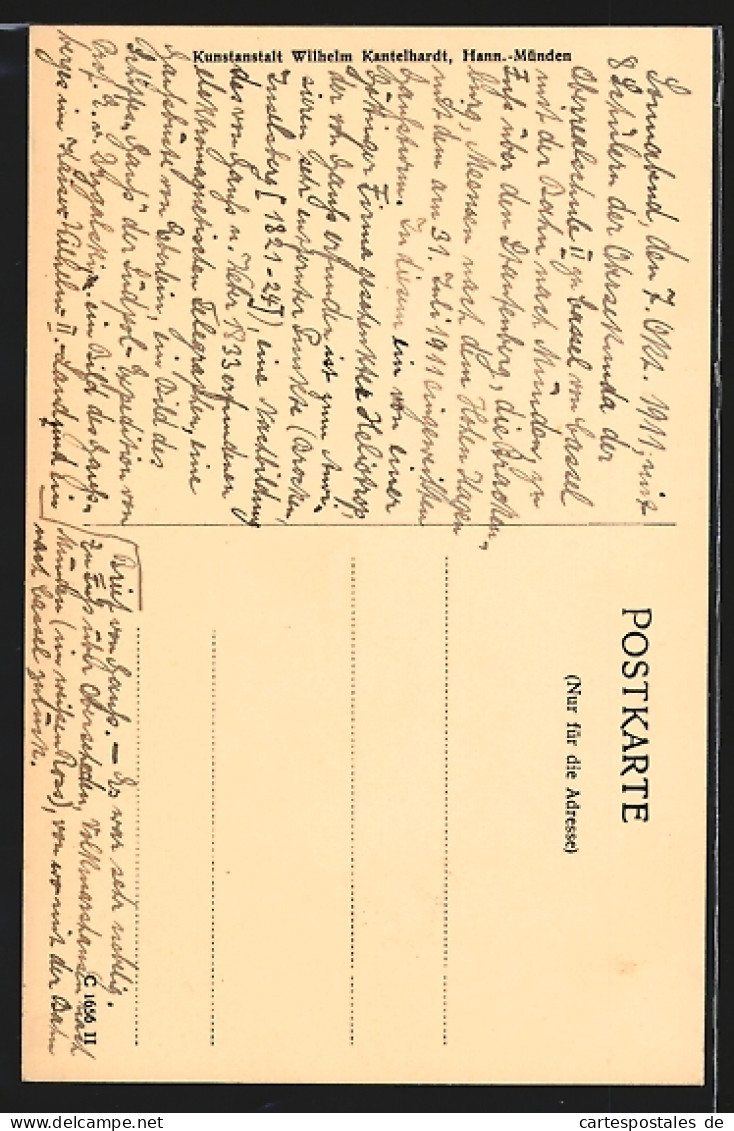 Kunstanstalt Wilhelm Kantelhardt, Hann.-Münden
Sonnabend, den 7. Okt. 1911, mit
8 Schülern der Obersekunda der
Oberrealschule II zu Cassel von Cassel
mit der Bahn nach Münden, zu
Fuß über den Dransberg, die Bracken-
burg, Meensen nach dem Hohen Hagen
mit dem am 31. Juli 1911 eingeweihten
Gaußturm. In diesem ein von einer
Göttinger Firma geschenktes Heliotrop,
der von Gauß erfunden ist zum
sieren sehr entfernter Punkte (Brocken,
Inselsberg [1821-24]), eine Nachbildung
des von Gauß u. Weber 1833 erfundenen
elektromagnetischen Telegraphen, eine
Gaußbüste von Eberlein, ein Bild des
Schiffes "Gauß" der Südpol-Expedition von
Prof. E. v. Drygalski, ein Bild des Gauß-
berges im Kaiser Wilhelm II.-Land und ein
Brief von Gauß. — Es war sehr neblig.
Zu Fuß über Oberscheden, Volkmarshausen nach
Münden (im weißen Ross), von wo mit der Bahn
nach Cassel zurück.
POSTKARTE
(Nur für die Adresse)
C 1656 II
cartespostales de